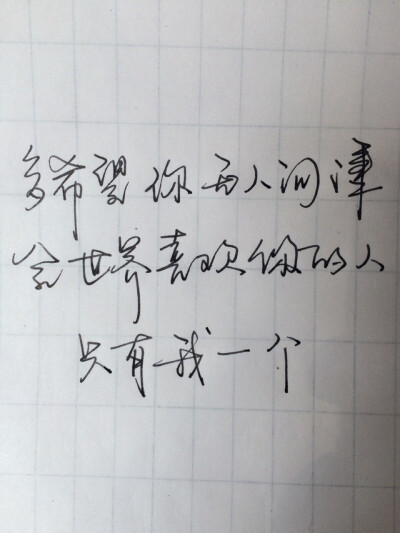 多希望你无人问津
全世界喜欢你的人
只有我一个